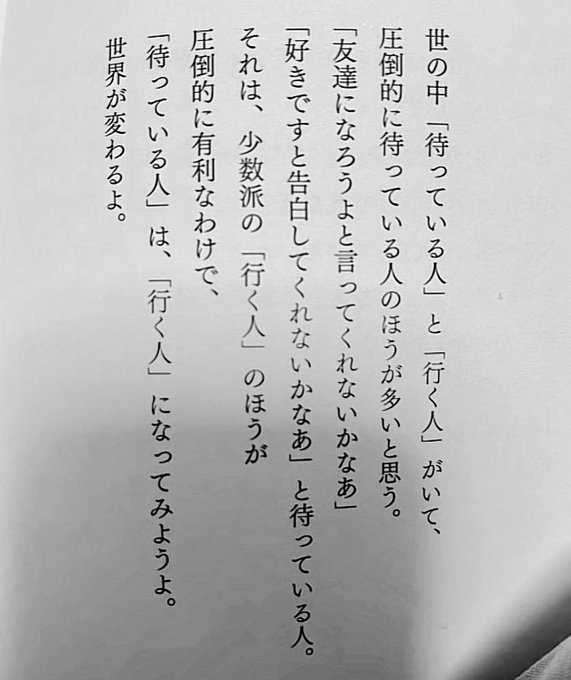 世の中「待っている人」と「行く人」がいて、
圧倒的に待っている人のほうが多いと思う。
「友達になろうよと言ってくれないかなあ」
「好きですと告白してくれないかなあ」と待っている人。
それは、少数派の「行く人」のほうが
圧倒的に有利なわけで、
「待っている人」は、「行く人」になってみようよ。
世界が変わるよ。